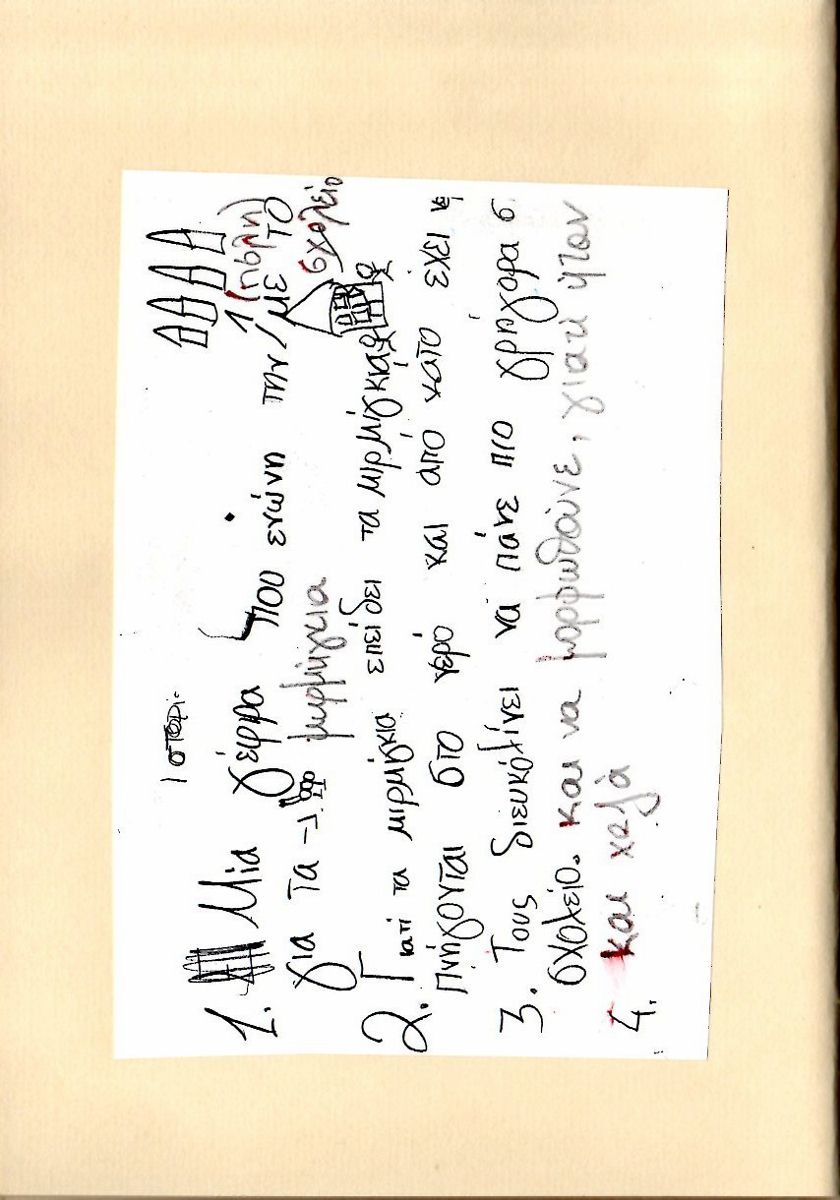 ιστορι.
1. Μία γέφρα που ενώνη την (πόλη) με το
για τα → μυρμήγκια σχολείο
2. Γιατί τα μιρμίγκια επείδει τα μιρμίγκια
πνήγονται στο νερό και από κάτο έχει
3. Τους διευκόλίνει νά πάνε πιο γρήγορα σ
σχολείο. και να μορφωθούνε, γιατί ήταν
4. και χαζά